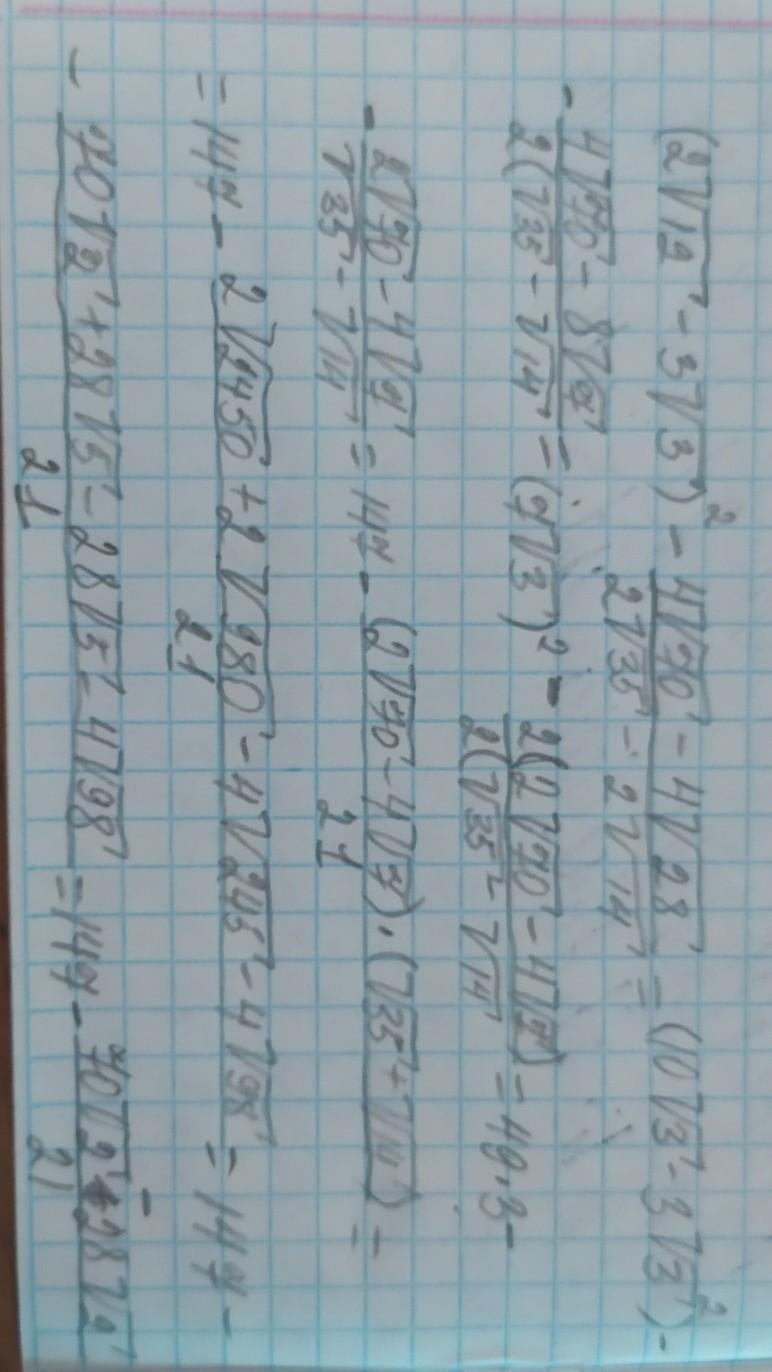 (2√12 - 3√3)² - (4√70 - 4√28)/(2√35 - 2√14) = (10√3 - 3√3)² -
- (4√70 - 8√7)/(2(√35 - √14)) = (7√3)² - (2(2√70 - 4√7))/(2(√35 - √14)) = 49·3 -
- (2√70 - 4√7)/(√35 - √14) = 147 - ((2√70 - 4√7)·(√35 + √14))/21 =
= 147 - (2√2450 + 2√980 - 4√245 - 4√98)/21 = 147 -
- (70√2 + 28√5 - 28√5 - 4√98)/21 = 147 - (70√2 - 28√2)/21